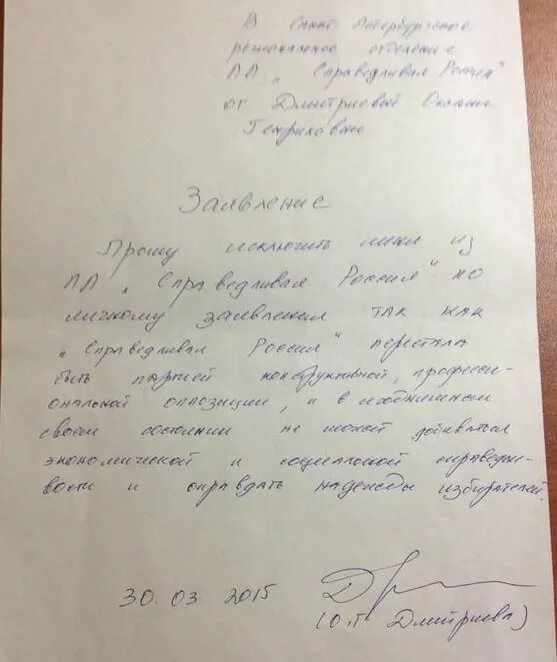 В Санкт-Петербургское
региональное отделение
ПП „Справедливая Россия"
от Дмитриевой Оксаны
Генриховны
Заявление
Прошу исключить меня из
ПП „Справедливая Россия" по
личному заявлению так как
„Справедливая Россия" перестала
быть партией конструктивной, професси-
ональной оппозиции, и в
своем состоянии не может добиваться
экономической и социальной справедли-
вости и оправдать надежды избирателей.
30.03 2015
(О.Г. Дмитриева)